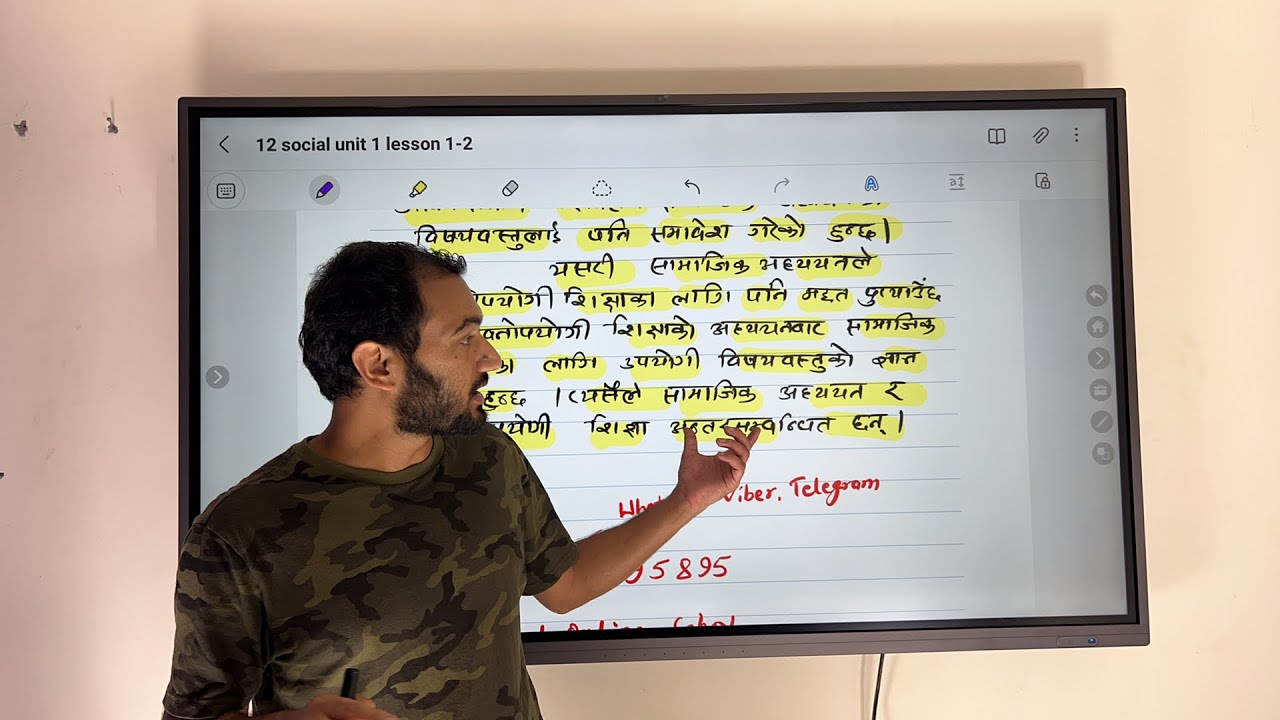 12 social unit 1 lesson 1-2
विषयवस्तुलाई पनि समावेश गरेको हुन्छ।
यसरी सामाजिक अध्ययनले
पयोगी शिक्षाका लागि पनि मद्दत पुर्‍याउँछ
वनोपयोगी शिक्षाको अध्ययनबाट सामाजिक
का लागि उपयोगी विषयवस्तुको ज्ञान
हुन्छ । त्यसैले सामाजिक अध्ययन र
पयोगी शिक्षा अन्तरसम्बन्धित छन्।
Viber, Telegram
95895